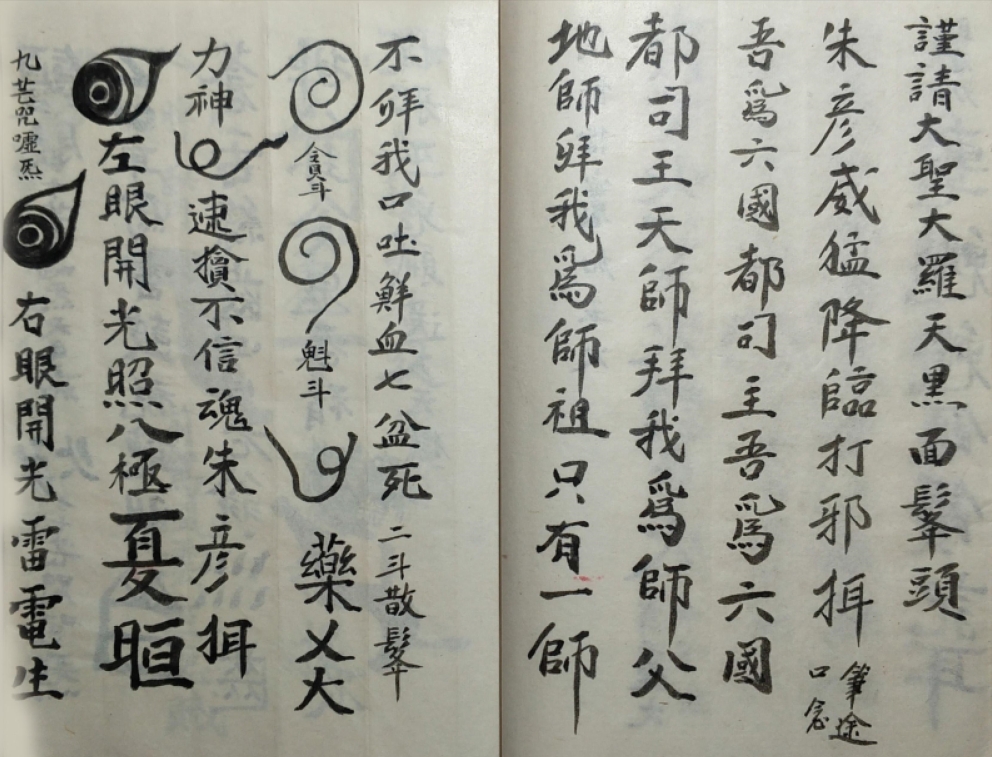 謹請大聖大羅天黑面髼頭
朱彥威猛降臨打邪挕
筆塗
口念
吾爲六國都司主吾爲六國
都司王天師拜我爲師父
地師拜我爲師祖只有一師
不拜我口吐鮮血七盆死
二斗散髼
斗
魁斗
藥乂大
力神
速攙不信魂朱彥挕
左眼開光照八極
右眼開光雷電生